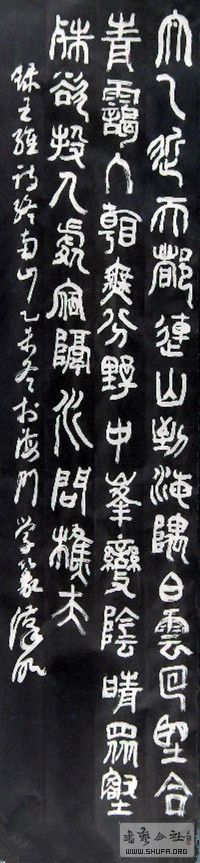 太乙近天都連山到海隅白雲回望合
青靄入看無分野中峯變陰晴眾壑
殊欲投人處宿隔水問樵夫
録王維詩終南山乙未冬於海門 学篆
書藝公社
WWW.SHUFA.ORG